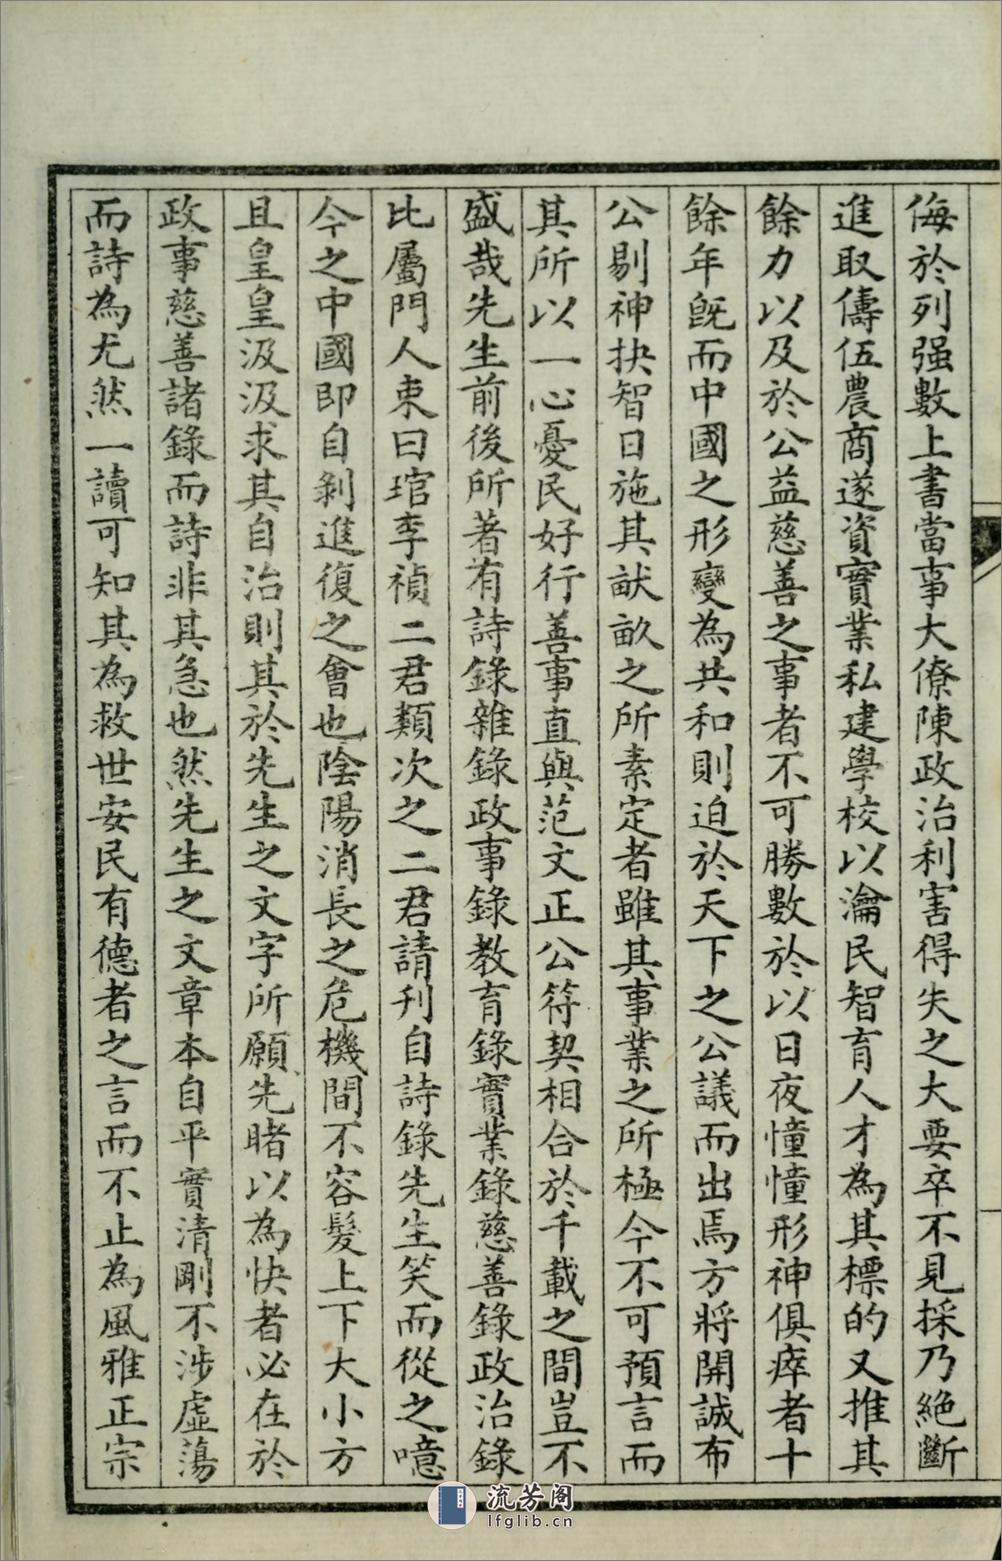 侮於列强數上書當事大僚陳政治利害得失之大要卒不見採乃絶斷
進取儔伍農商遂資實業私建學校以瀹民智育人才為其標的又推其
餘力以及於公益慈善之事者不可勝數於以日夜憧憧形神俱瘁者十
餘年旣而中國之形變為共和則迫於天下之公議而出焉方將開誠布
公剔神抉智日施其猷畝之所素定者雖其事業之所極今不可預言而
其所以一心憂民好行善事直與范文正公符契相合於千載之間豈不
盛哉先生前後所著有詩錄雜錄政事錄教育錄實業錄慈善錄政治錄
比屬門人束曰琯李禎二君類次之二君請刊自詩錄先生笑而從之噫
今之中國即自剝進復之會也陰陽消長之危機間不容髮上下大小方
且皇皇汲汲求其自治則其於先生之文字所願先睹以為快者必在於
政事慈善諸錄而詩非其急也然先生之文章本自平實清剛不涉虛蕩
而詩為尤然一讀可知其為救世安民有德者之言而不止為風雅正宗
流芳阁
lfglib.cn